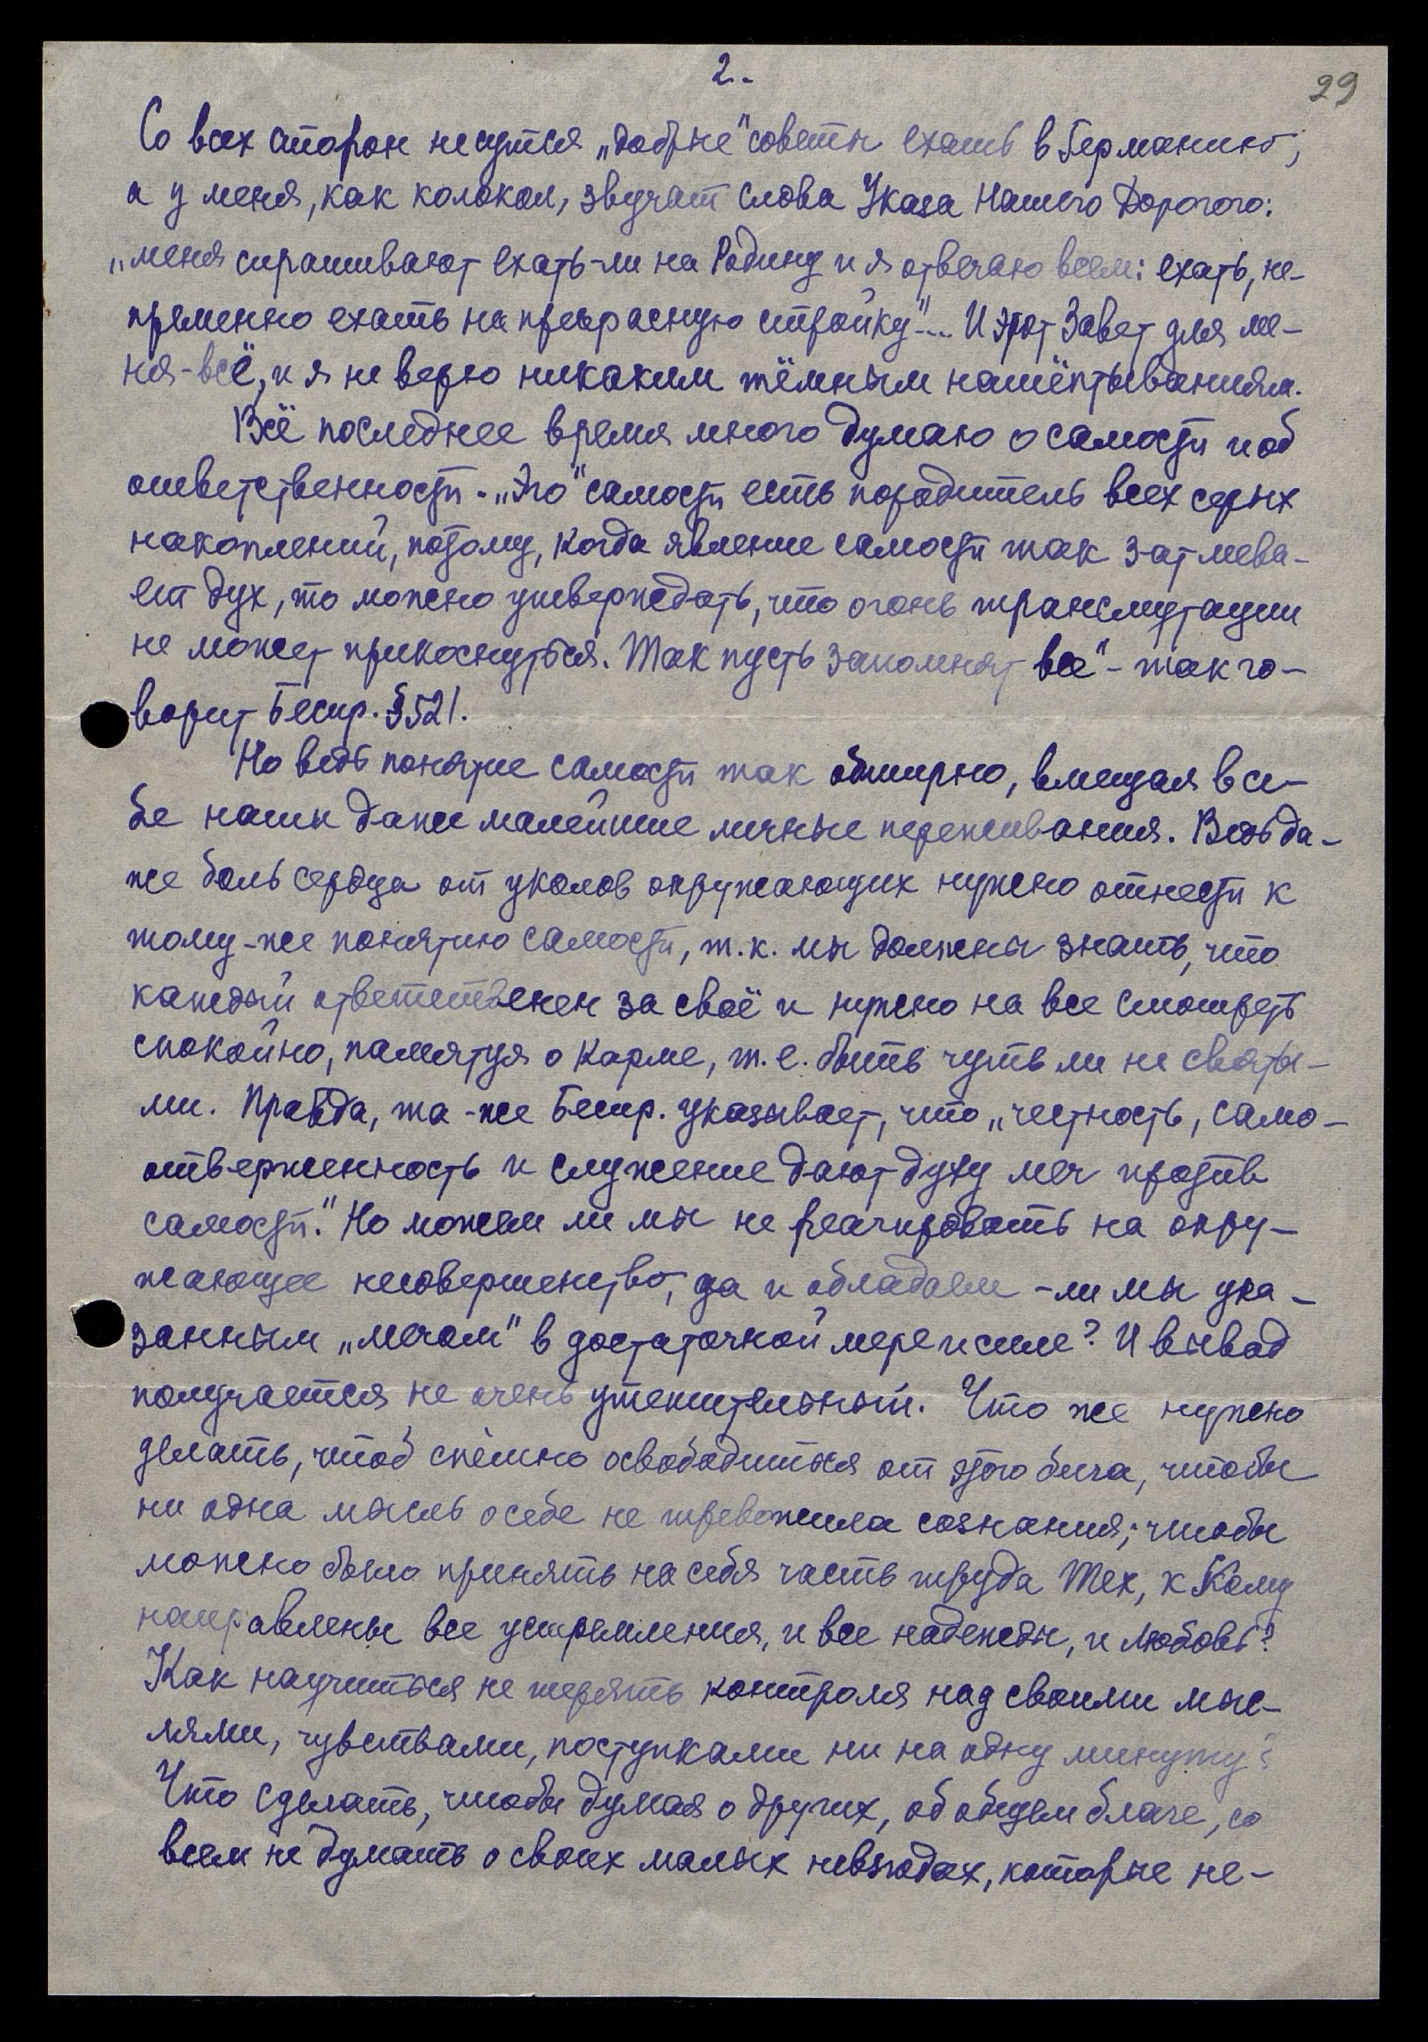 2.-
29
Со всех сторон несутся „добрые" советы ехать в Германию,
а у меня, как колокол, звучат слова Указа Нашего Дорогого:
„меня спрашивают ехать-ли на Родину и я отвечаю всем: ехать, не-
пременно ехать на прекрасную стройку"... И этот Завет для ме-
ня-всё, и я не верю никаким тёмным нашёптываниям.
Всё последнее время много думаю о самости и об
ответственности. „Эго" самости есть породитель всех серых
накоплений, потому, когда явление самости так затмева-
ет дух, то можно утверждать, что огонь трансмутации
не может прикоснуться. Так пусть запомнят все" - так го-
ворит Беспр. §521.
Но ведь понятие самости так обширно, вмещая в се-
бе наши даже малейшие личные переживания. Ведь да-
же боль сердца от уколов окружающих нужно отнести к
тому-же понятию самости, т.к. мы должны знать, что
каждый ответственен за своё и нужно на все смотреть
спокойно, памятуя о Карме, т.е. быть чуть ли не святы-
ми. Правда, та-же Беспр. указывает, что „честность, само-
отверженность и служение дают духу меч против
самости." Но можем ли мы не реагировать на окру-
жающее несовершенство, да и обладаем-ли мы ука-
занным „мечом" в достаточной мере и силе? И вывод
получается не очень утешительный. Что же нужно
делать, чтоб спешно освободиться от этого бича, чтобы
ни одна мысль о себе не тревожила сознания; чтобы
можно было принять на себя часть труда Тех, к Кому
направлены все устремления, и все надежды, и любовь?
Как научиться не терять контроля над своими мыс-
лями, чувствами, поступками ни на одну минуту?
Что сделать, чтобы думая о других, об общем благе, со
всем не думать о своих малых невзгодах, которые не-